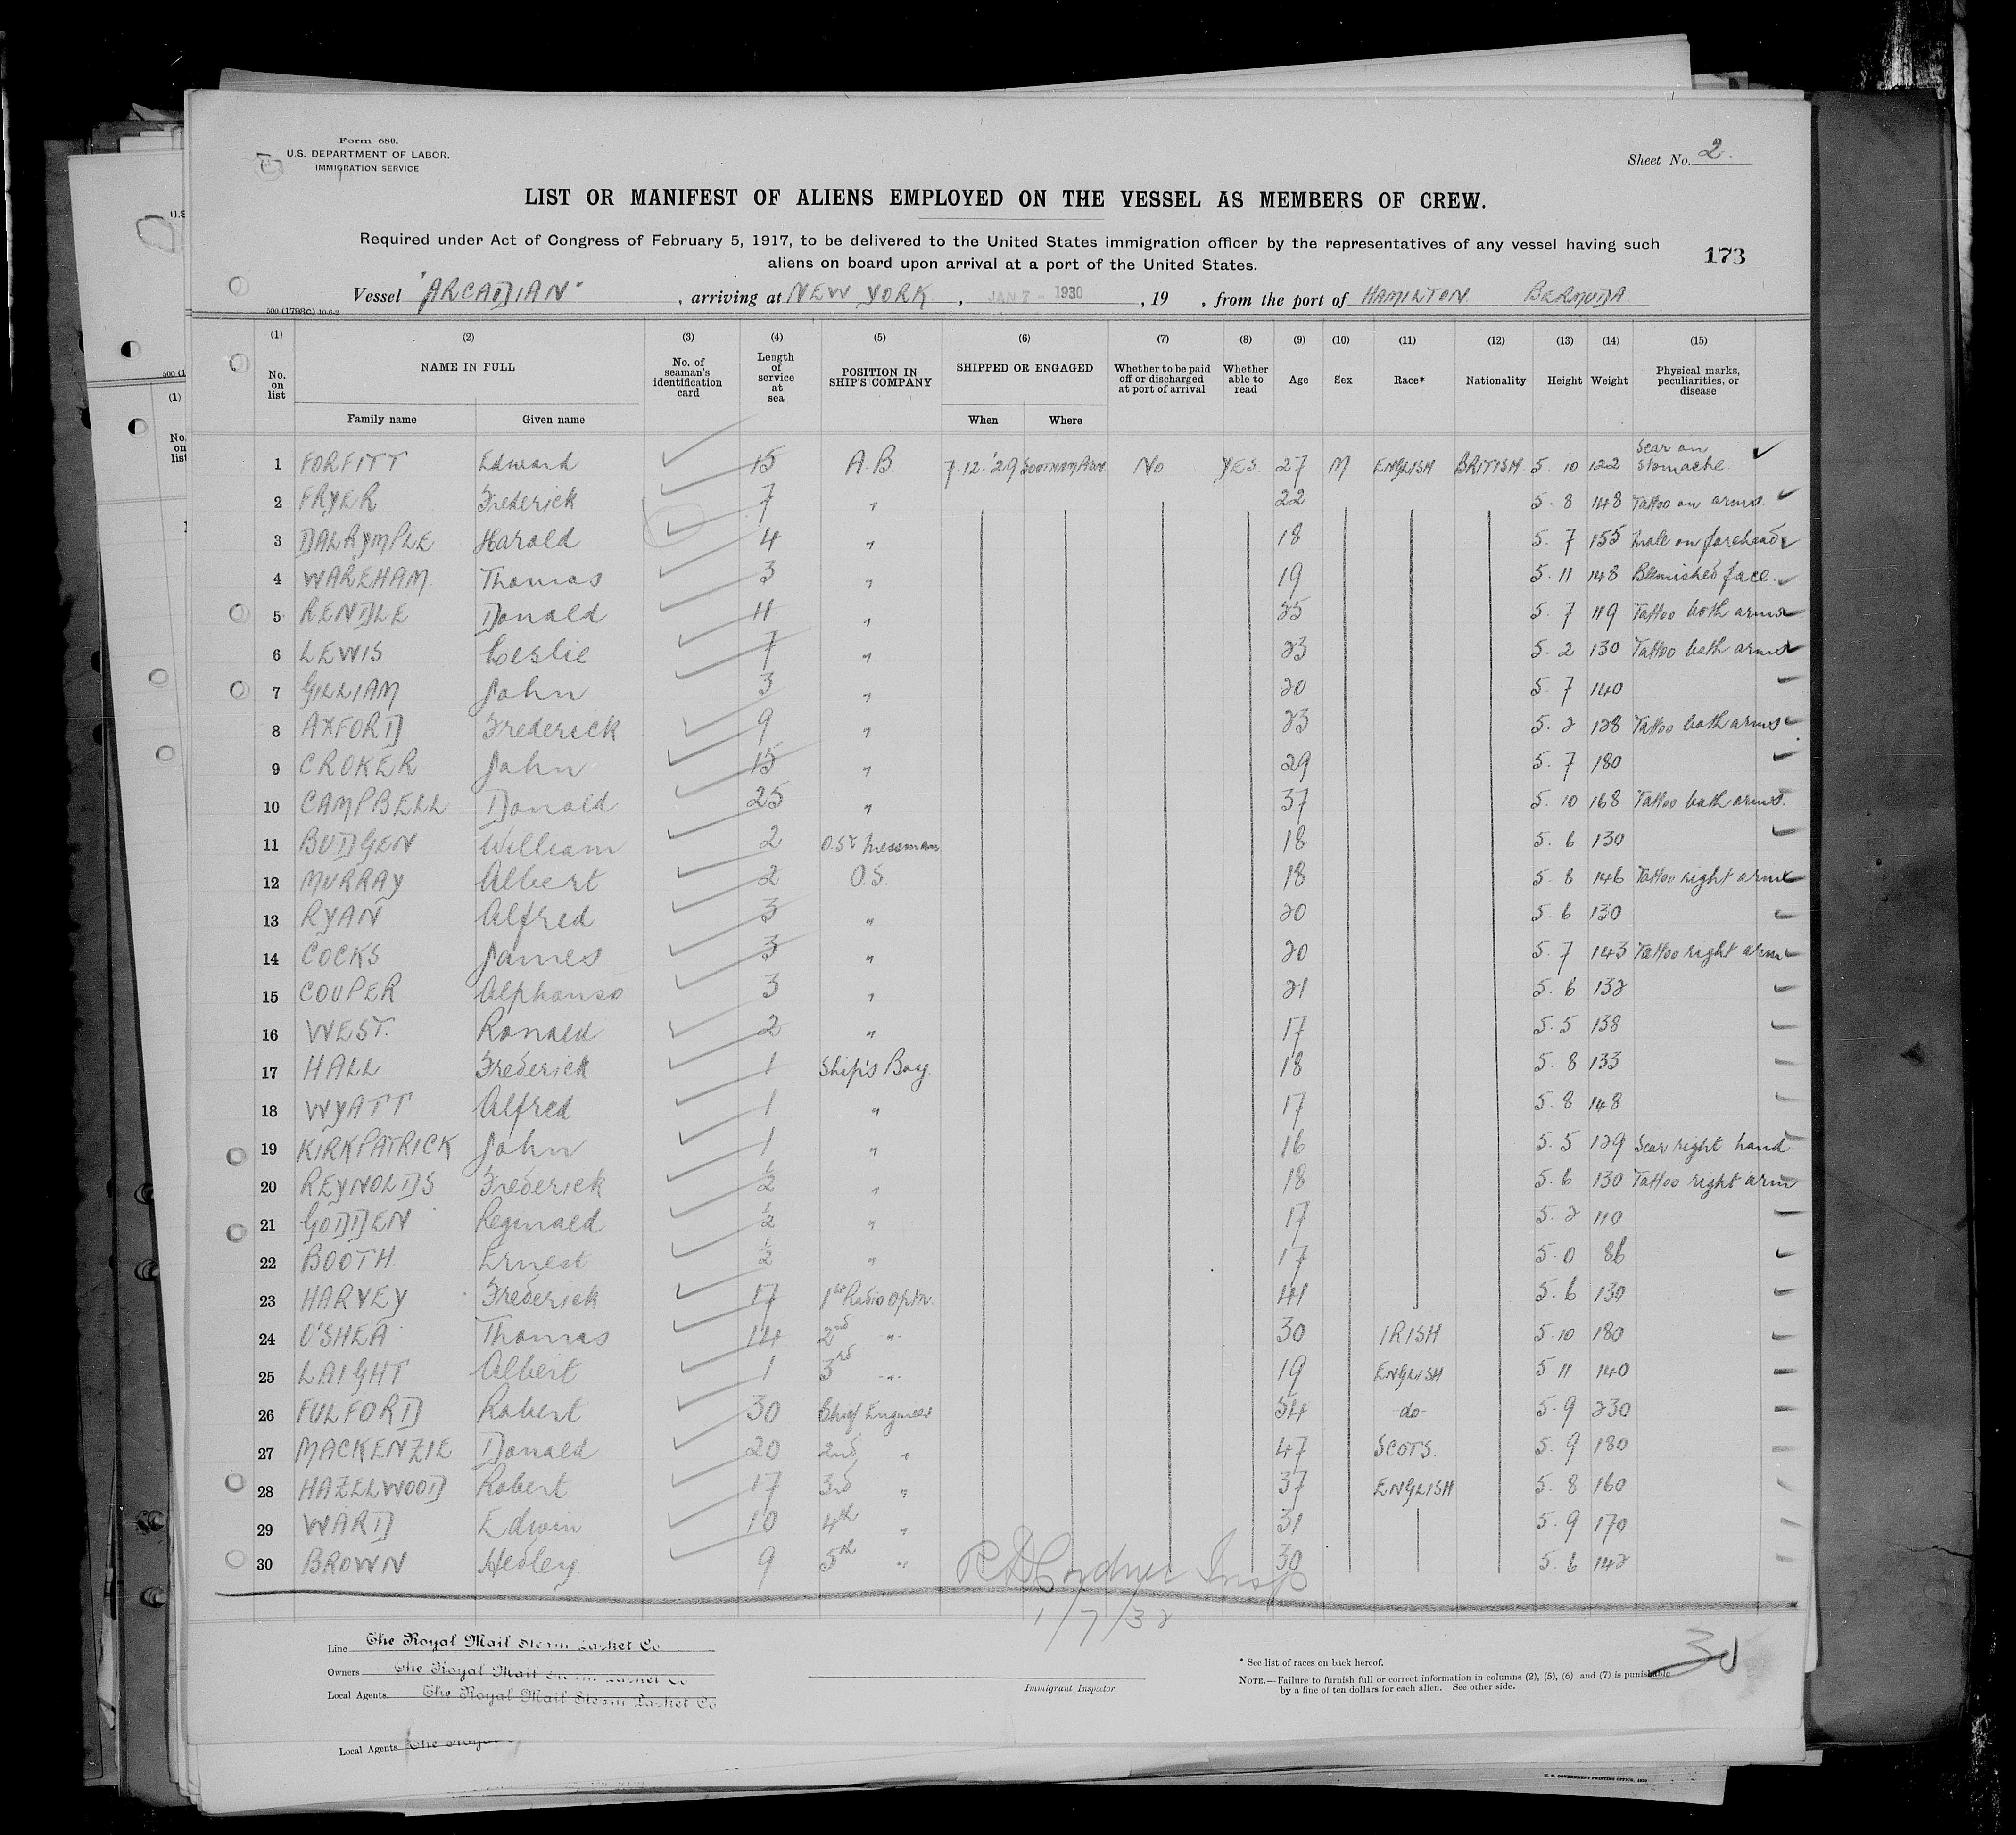 Form 680.
U.S. DEPARTMENT OF LABOR.
IMMIGRATION SERVICE
Sheet No. 2.
LIST OR MANIFEST OF ALIENS EMPLOYED ON THE VESSEL AS MEMBERS OF CREW.
Required under Act of Congress of February 5, 1917, to be delivered to the United States immigration officer by the representatives of any vessel having such
aliens on board upon arrival at a port of the United States.
173
Vessel "ARCADIAN", arriving at NEW YORK, JAN 7 - 1930, 19 , from the port of HAMILTON BERMUDA
(1) (2) (3) (4) (5) (6) (7) (8) (9) (10) (11) (12) (13) (14) (15)
No. on list NAME IN FULL Family name Given name No. of seaman's identification card Length of service at sea POSITION IN SHIP'S COMPANY SHIPPED OR ENGAGED When Where Whether to be paid off or discharged at port of arrival Whether able to read Age Sex Race* Nationality Height Weight Physical marks, peculiarities, or disease
1 FORFITT Edward 15 A.B. 7.12.'29 Southampton No YES 27 M ENGLISH BRITISH 5. 10 122 Scar on stomache
2 FRYER Frederick 7 " 22 5. 8 148 Tattoo on arms.
3 DALRYMPLE Harold 4 " 18 5. 7 155 Mole on forehead
4 WAREHAM. Thomas 3 " 19 5. 11 148 Blemished face.
5 RENDLE Donald 11 " 25 5. 7 119 Tattoo both arms
6 LEWIS Leslie 7 " 23 5. 2 130 Tattoo both arms
7 GILLIAM John 3 " 20 5. 7 140
8 AXFORD Frederick 9 " 23 5. 2 128 Tattoo both arms
9 CROKER John 15 " 29 5. 7 180
10 CAMPBELL Donald 25 " 37 5. 10 168 Tattoo both arms.
11 BUDGEN William 2 O.S. Messman 18 5. 6 130
12 MURRAY Albert 2 O.S. 18 5. 8 146 Tattoo right arm
13 RYAN Alfred 3 " 20 5. 6 130
14 COCKS James 3 " 20 5. 7 143 Tattoo right arm
15 COUPER Alphonso 3 " 21 5. 6 132
16 WEST. Ronald 2 " 17 5. 5 138
17 HALL Frederick 1 Ship's Boy. 18 5. 8 133
18 WYATT Alfred 1 " 17 5. 8 148
19 KIRKPATRICK John 1 " 16 5. 5 129 Scar right hand.
20 REYNOLDS Frederick 1/2 " 18 5. 6 130 Tattoo right arm
21 GODDEN Reginald 1/2 " 17 5. 2 110
22 BOOTH. Ernest 1/2 " 17 5. 0 86
23 HARVEY Frederick 17 1st Radio Optr. 41 5. 6 130
24 O'SHEA Thomas 14 2nd " 30 IRISH 5. 10 180
25 LAIGHT Albert 1 3rd " 19 ENGLISH 5. 11 140
26 FULFORD Robert 30 Chief Engineer 54 -do- 5. 9 230
27 MACKENZIE Donald 20 2nd " 47 SCOTS. 5. 9 180
28 HAZELWOOD Robert 17 3rd " 37 ENGLISH 5. 8 160
29 WARD Edwin 10 4th " 31 5. 9 170
30 BROWN Hedley 9 5th " 30 5. 6 142
Insp
1/7/30
Line The Royal Mail Steam Packet Co
Owners The Royal Mail Steam Packet Co
Local Agents. The Royal Mail Steam Packet Co
Immigrant Inspector
* See list of races on back hereof.
NOTE.—Failure to furnish full or correct information in columns (2), (5), (6) and (7) is punishable
by a fine of ten dollars for each alien. See other side.
30
Local Agents The Royal
U. S. GOVERNMENT PRINTING OFFICE